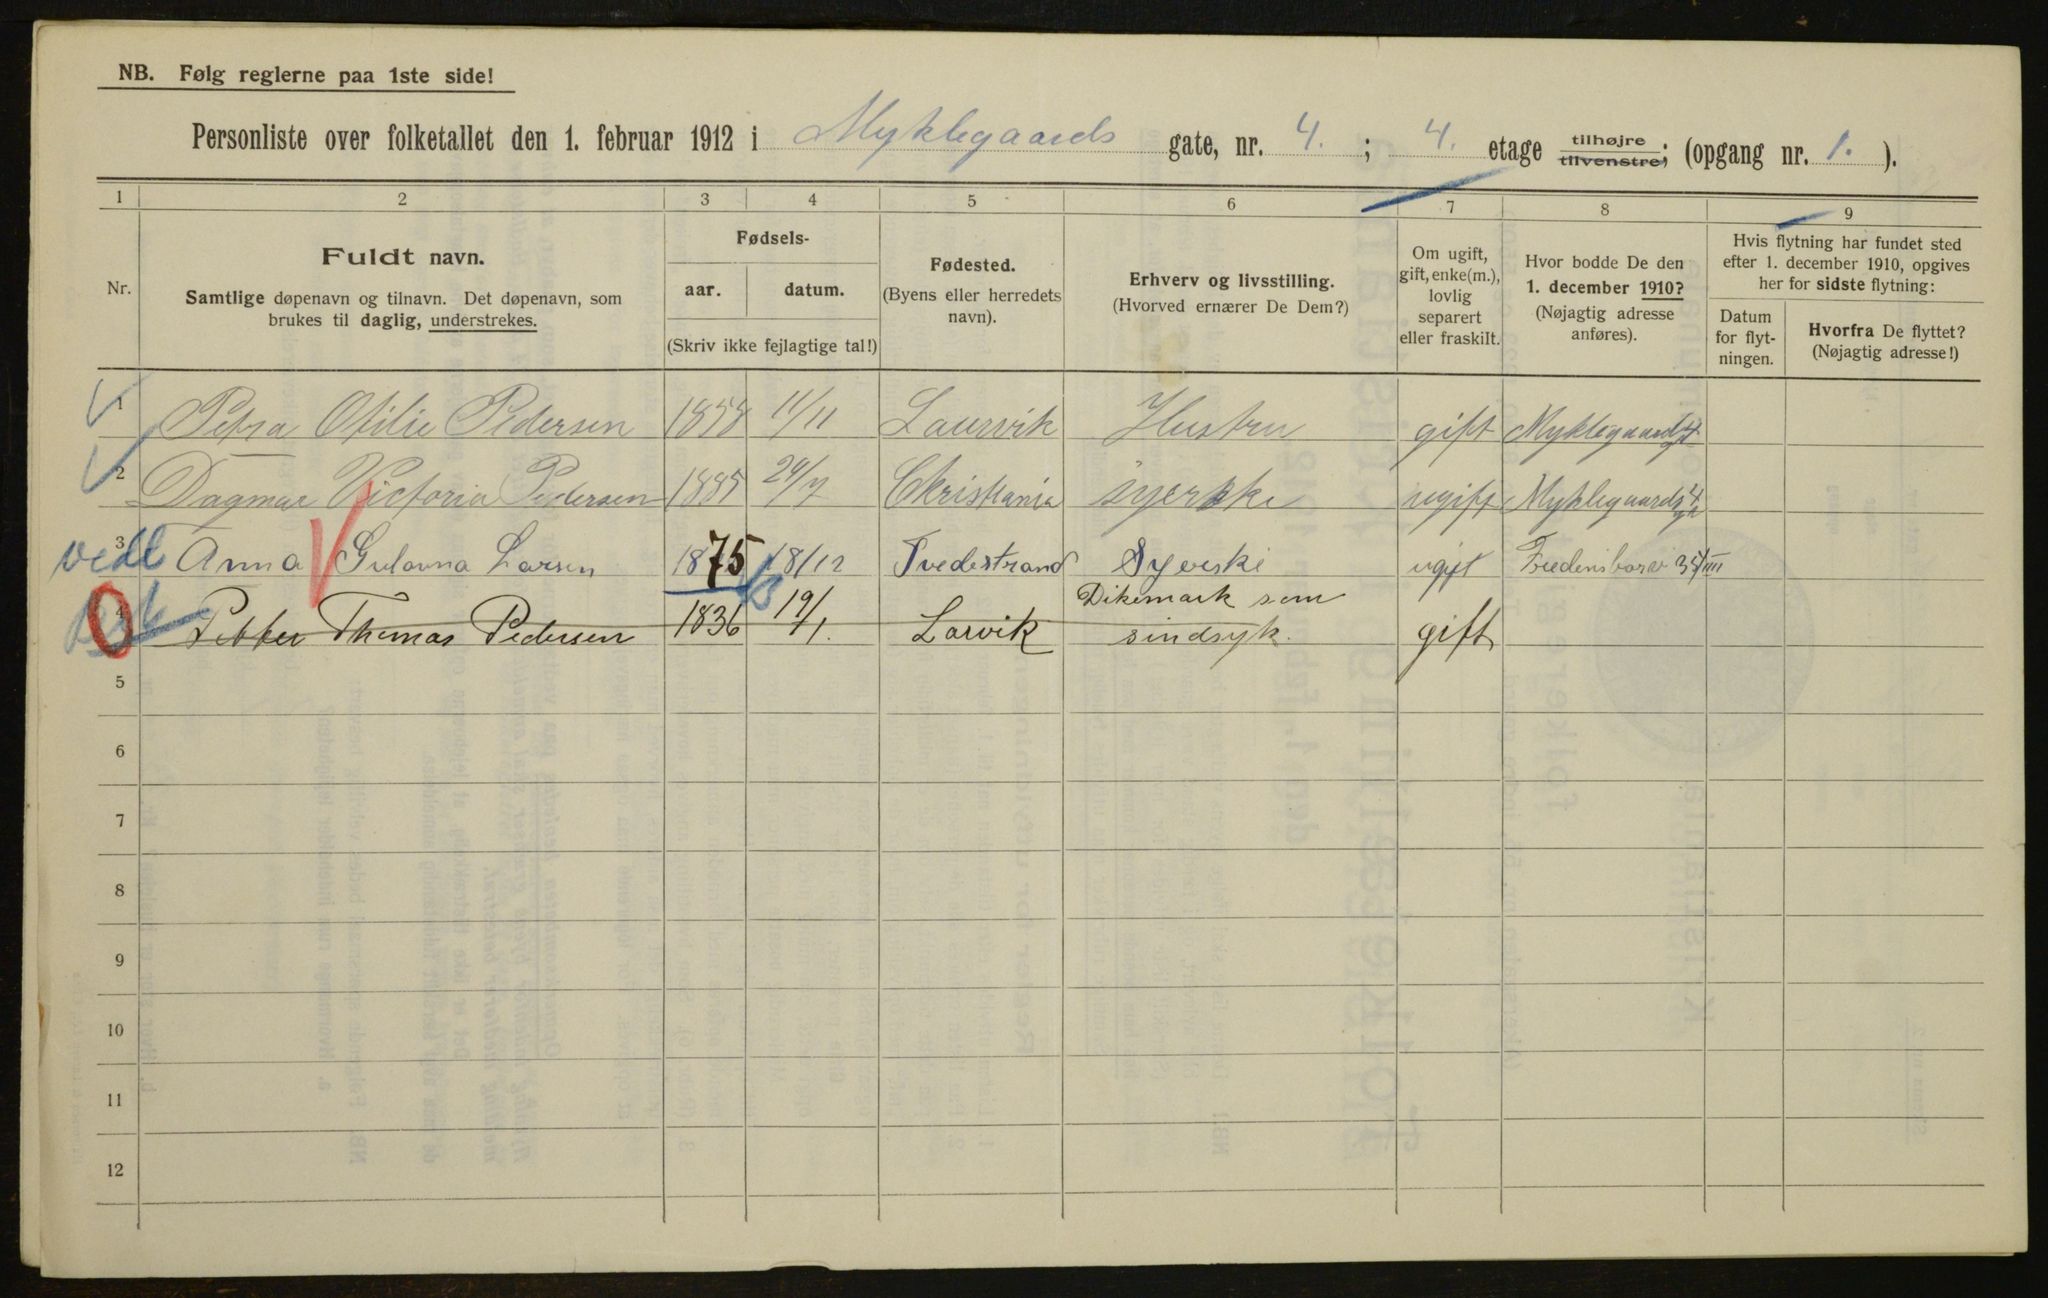 NB. Følg reglerne paa 1ste side!
Personliste over folketallet den 1. februar 1912 i Myklegaards gate, nr. 4. ; 4. etage tilhøjre tilvenstre; (opgang nr. 1. ).
1 2 3 4 5 6 7 8 9
Nr.
Fuldt navn.
Samtlige døpenavn og tilnavn. Det døpenavn, som
brukes til daglig, understrekes.
Fødsels-
aar. datum.
(Skriv ikke fejlagtige tal!)
Fødested.
(Byens eller herredets
navn).
Erhverv og livsstilling.
(Hvorved ernærer De Dem?)
Om ugift,
gift, enke(m.),
lovlig
separert
eller fraskilt.
Hvor bodde De den
1. december 1910?
(Nøjagtig adresse
anføres).
Hvis flytning har fundet sted
efter 1. december 1910, opgives
her for sidste flytning:
Datum
for flyt-
ningen.
Hvorfra De flyttet?
(Nøjagtig adresse!)
1 Petra Otilie Pedersen 1858 11/11 Laurvik Hustru gift Myklegaardsgt 4
2 Dagmar Victoria Pedersen 1885 24/7 Christiania syerske ugift Myklegaardsgt 4
3 Anna Larsen 1875 18/12 Tvedestrand Syerske ugift
4 Petter Thomas Pedersen 1836 19/1. Larvik Dikemark som
sindsyk. gift
5
6
7
8
9
10
11
12